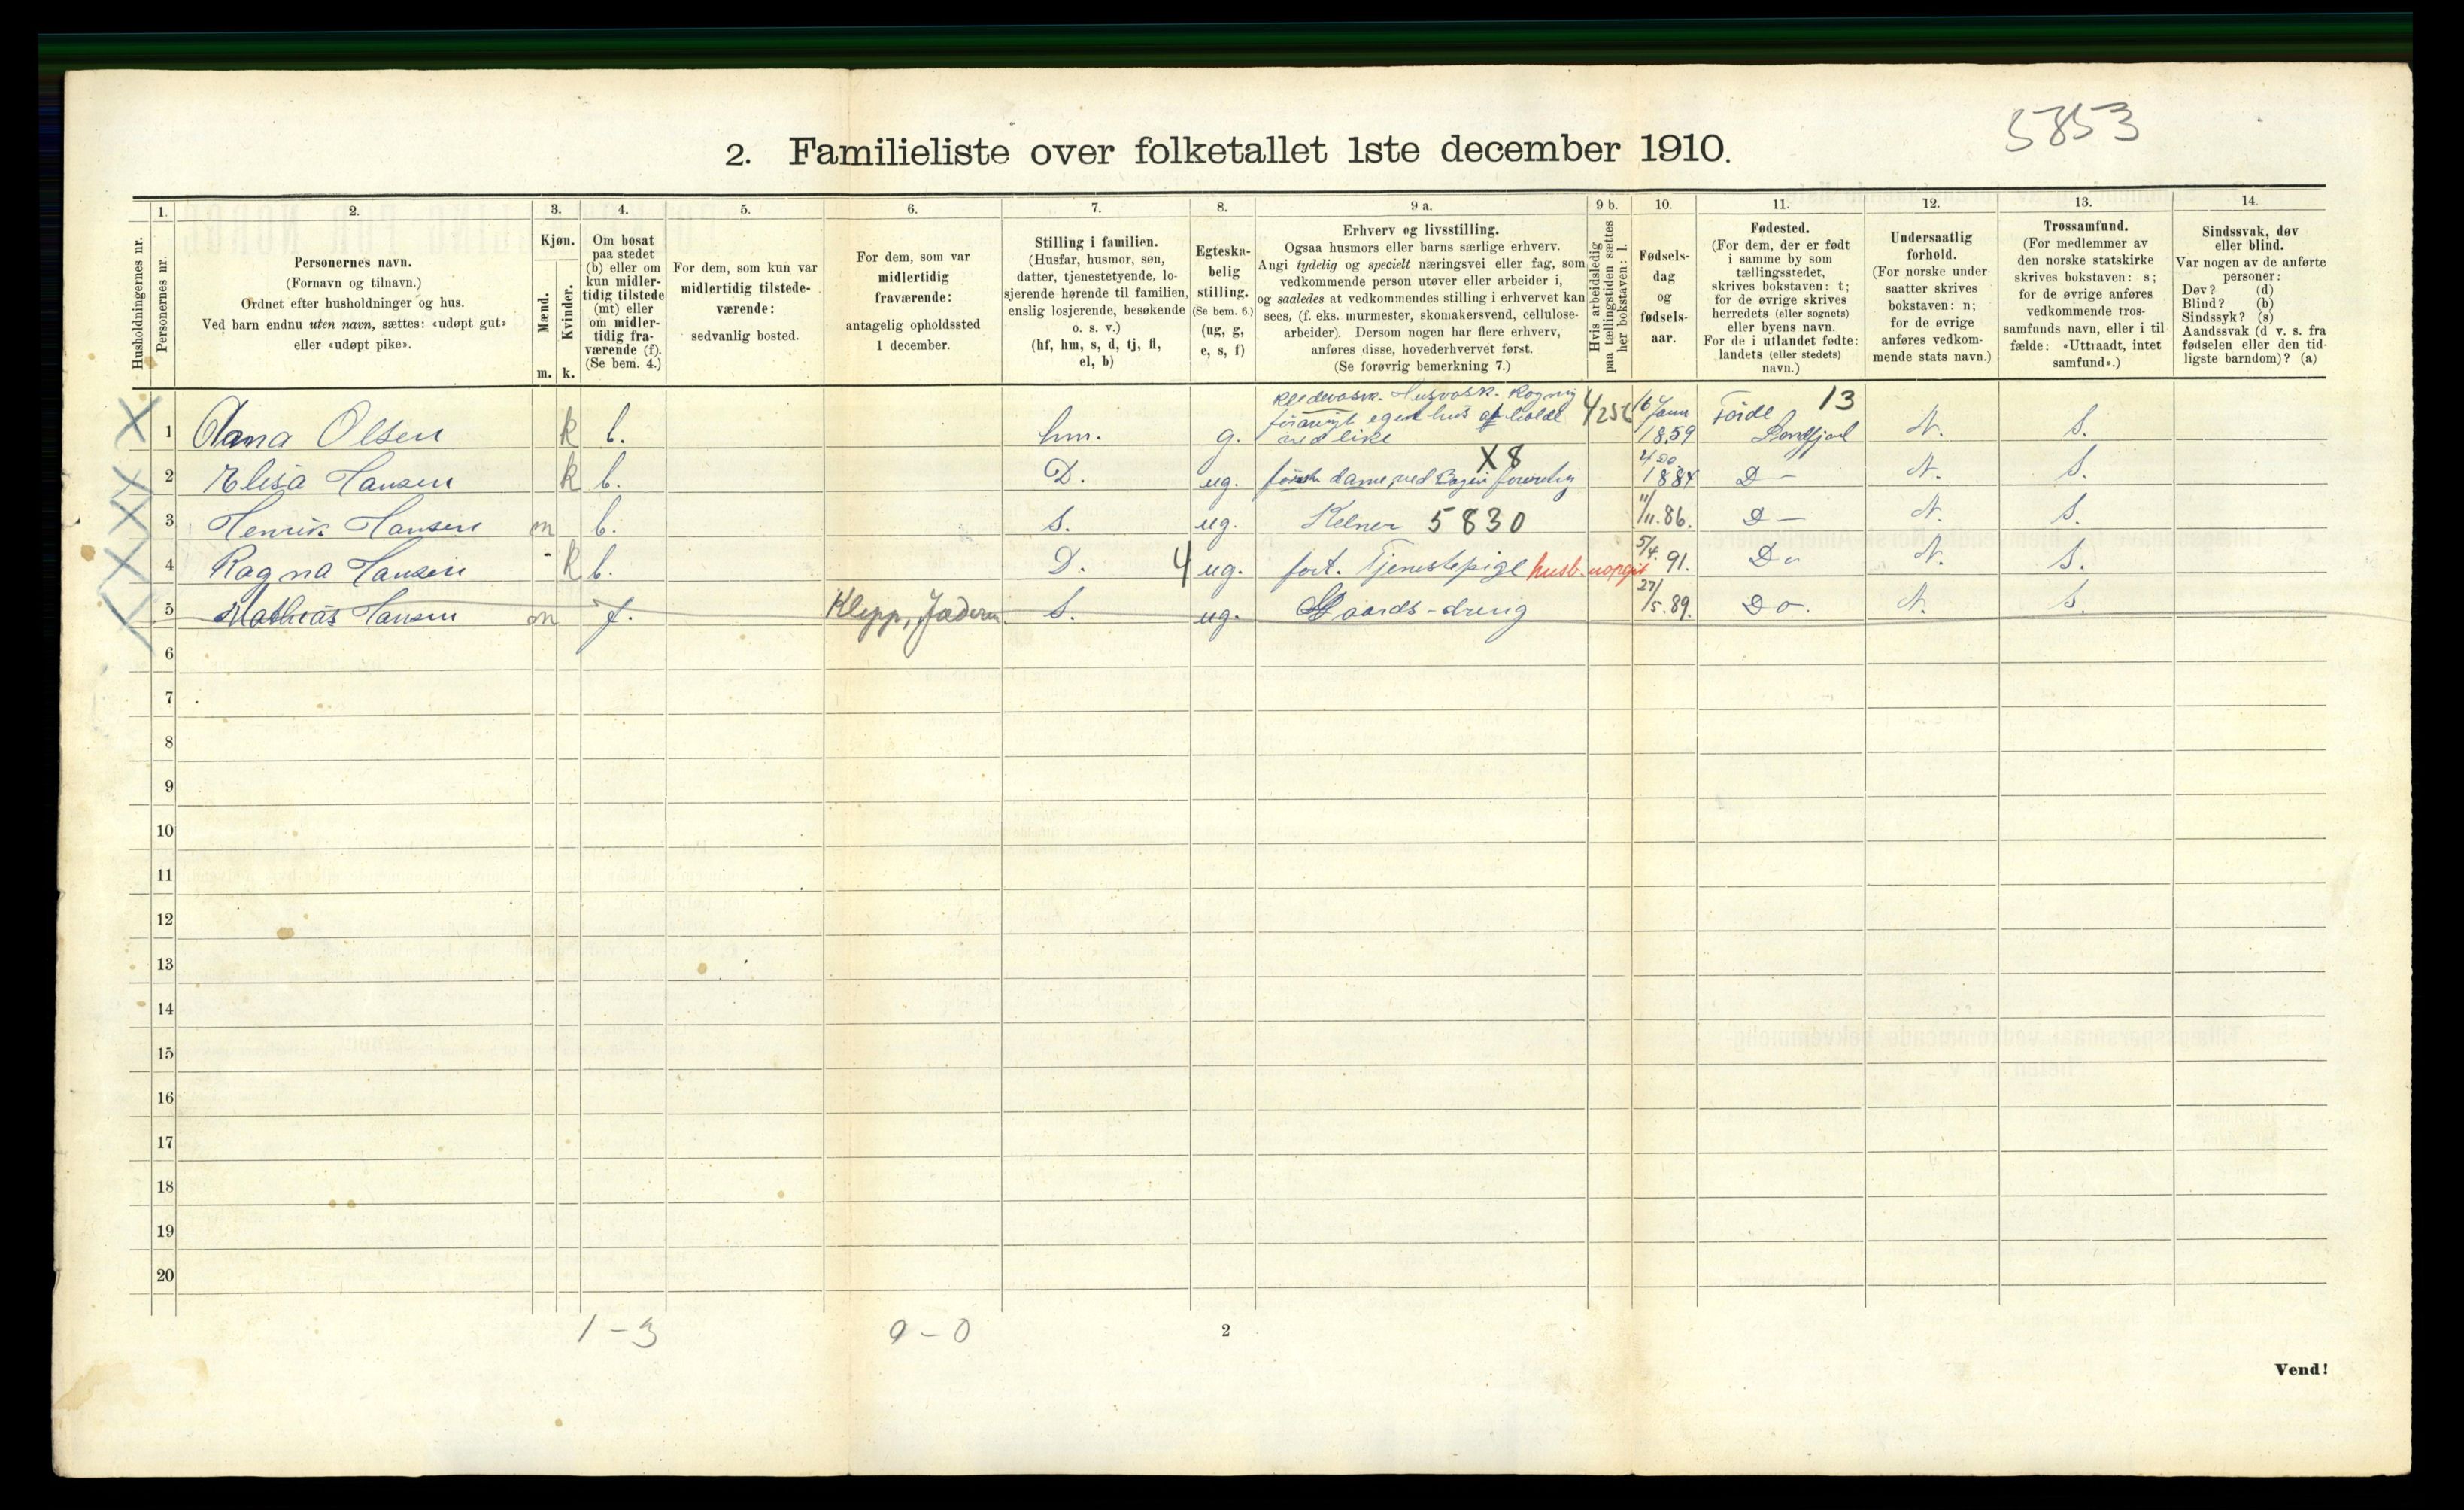 5853
2. Familieliste over folketallet 1ste december 1910.
Husholdningernes nr.
1. Personernes nr.
2. Personernes navn.
(Fornavn og tilnavn.)
Ordnet efter husholdninger og hus.
Ved barn endnu uten navn, sættes: «udøpt gut»
eller «udøpt pike».
3. Kjøn.
Mænd. m.
Kvinder. k.
4. Om bosat
paa stedet
(b) eller om
kun midler-
tidig tilstede
(mt) eller
om midler-
tidig fra-
værende (f).
(Se bem. 4.)
5. For dem, som kun var
midlertidig tilstede-
værende:
sedvanlig bosted.
6. For dem, som var
midlertidig
fraværende:
antagelig opholdssted
1 december.
7. Stilling i familien.
(Husfar, husmor, søn,
datter, tjenestetyende, lo-
sjerende hørende til familien,
enslig losjerende, besøkende
o. s. v.)
(hf, hm, s, d, tj, fl,
el, b)
8. Egteska-
belig
stilling.
(Se bem. 6.)
(ug, g,
e, s, f)
9 a. Erhverv og livsstilling.
Ogsaa husmors eller barns særlige erhverv.
Angi tydelig og specielt næringsvei eller fag, som
vedkommende person utøver eller arbeider i,
og saaledes at vedkommendes stilling i erhvervet kan
sees, (f. eks. murmester, skomakersvend, cellulose-
arbeider). Dersom nogen har flere erhverv,
anføres disse, hovederhvervet først.
(Se forøvrig bemerkning 7.)
9 b. Hvis arbeidsledig
paa tællingstiden sættes
her bokstaven: l.
10. Fødsels-
dag
og
fødsels-
aar.
11. Fødested.
(For dem, der er født
i samme by som
tællingsstedet,
skrives bokstaven: t;
for de øvrige skrives
herredets (eller sognets)
eller byens navn.
For de i utlandet fødte:
landets (eller stedets)
navn.)
12. Undersaatlig
forhold.
(For norske under-
saatter skrives
bokstaven: n;
for de øvrige
anføres vedkom-
mende stats navn.)
13. Trossamfund.
(For medlemmer av
den norske statskirke
skrives bokstaven: s;
for de øvrige anføres
vedkommende tros-
samfunds navn, eller i til-
fælde: «Uttraadt, intet
samfund».)
14. Sindssvak, døv
eller blind.
Var nogen av de anførte
personer:
Døv? (d)
Blind? (b)
Sindssyk? (s)
Aandssvak (d. v. s. fra
fødselen eller den tid-
ligste barndom)? (a)
X 1 Anna Olsen k b. hm. g. Husvask. egen hus holde ved like 16 Jann 1859 Förde 13 N. S.
X 2 Elisa Hansen k b. D. ug. dame ved X8 1884 D — N. S.
X 3 Henrik Hansen m b. S. ug. Kelner 5830 11/11.86. D — N. S.
X 4 Ragna Hansen - k b. D. 4 ug. fort. Tjenestepige husb. uopgit 5/4. 91. Do N. S.
X 5 Mathias Hansen m f. Klepp, Jæderen S. ug. Gaards-dreng 27/5.89. Do. N. S.
6
7
8
9
10
11
12
13
14
15
16
17
18
19
20
1 – 3 0 – 0 2
Vend!